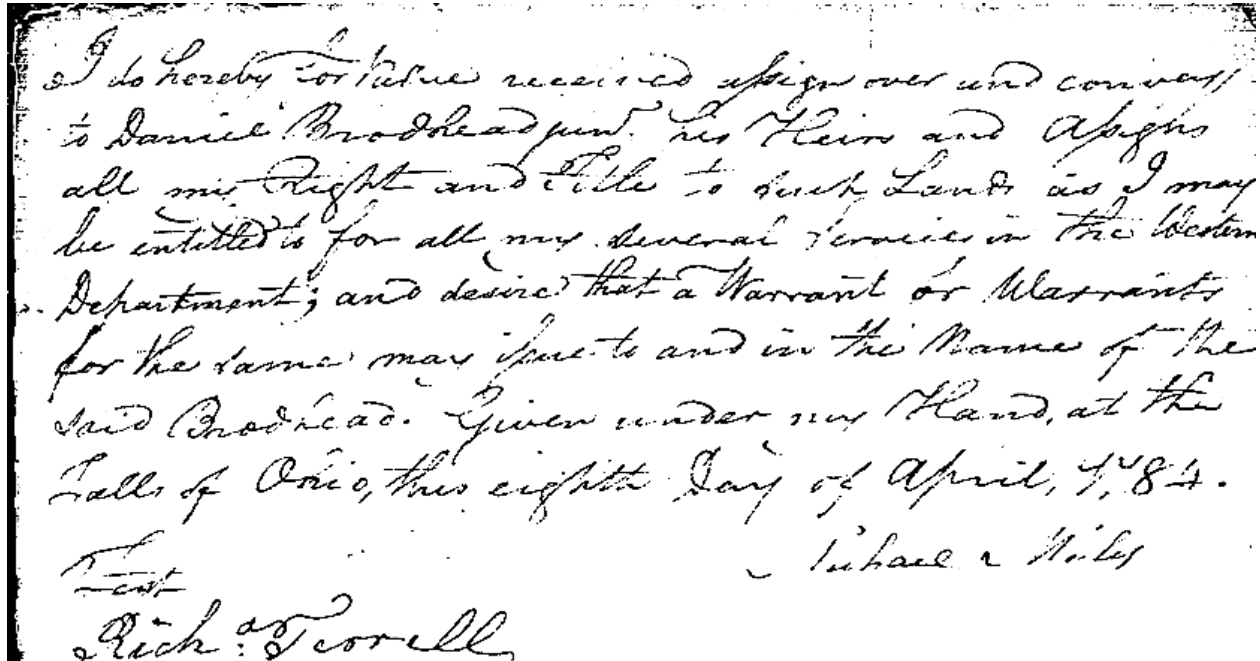 I do hereby for Value received assign over and convey
to Daniel Brodhead junr. his Heirs and Assigns
all my Right and Title to such Lands as I may
be entitled to for all my several Services in the Western
Department; and desire that a Warrant or Warrants
for the same may issue to and in the Name of the
said Brodhead. Given under my Hand, at the
Falls of Ohio, this eighth Day of April, 1784.
Michael
Test
Richd. Terrell